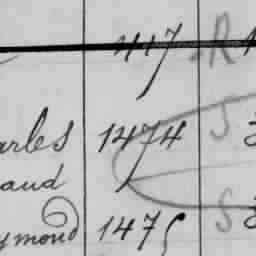 417 R
arles 1474 S 3
aud
ymond 1475 S 3